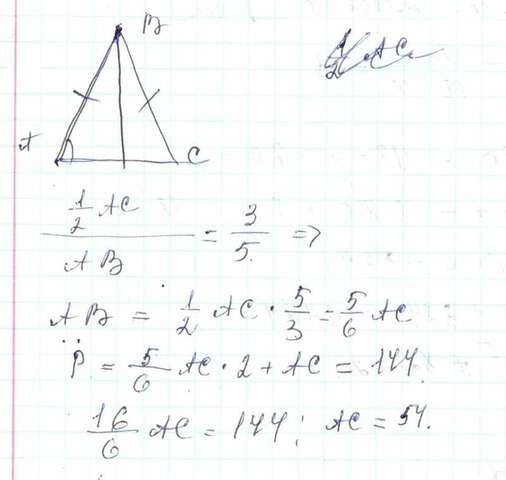 B
A
C
½ AC / AB = 3/5 ⇒
AB = ½ AC · 5/3 = 5/6 AC
P = 5/6 AC · 2 + AC = 144.
16/6 AC = 144; AC = 54.